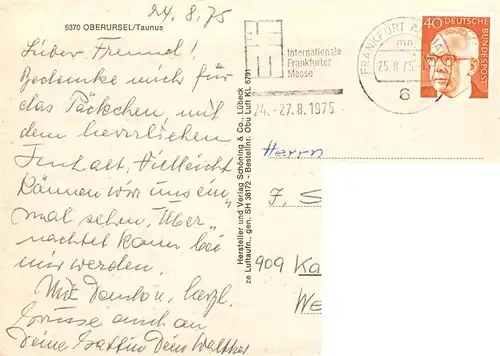 24.8.75
6370 OBERURSEL/Taunus
Lieber Freund!
Bedanke mich für
das Päckchen, mit
dem herrlichen
Inhalt, Vielleicht
können wir uns ein-
mal sehen, Über-
nachtet kann bei
mir werden.
Mit Dank u. herzl.
Grüsse auch an
Deine Gattin Dein Walther
Hersteller und Verlag Schöning & Co., Lübeck
ze Luftaufn., gen. SH 38172 - Bestellnr. Obu Luft KL 6791
Internationale
Frankfurter
Messe
24.-27.8.1975
FRANKFURT AM MAIN
mn
25.8.75
6
40 DEUTSCHE
BUNDESPOST
Herrn
J. S
909 Ka
We